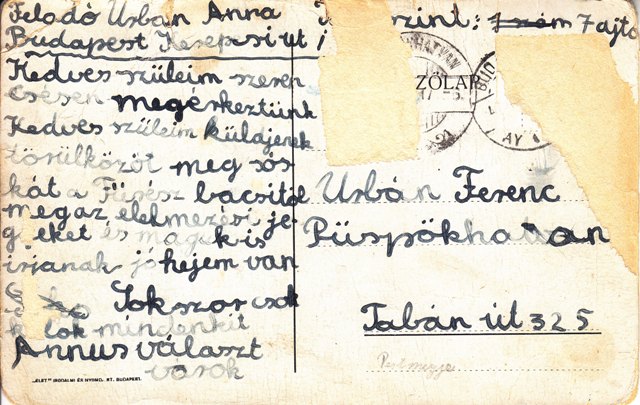 Feladó Urbán Anna szint: 7 ajtó
Budapest Kerepesi út
Kedves szüleim szeren
csésen megérkeztünk
Kedves szüleim küldjenek
törülközöt meg sós
kát a Fűrész bacsitól
meg az élelmezési je
gyeket és maguk is
irjanak jó hejem van
Sokszor csok
lok mindenkit
Annus választ
várok
HATVAN
ZOLAP
BUD
AY
Urbán Ferenc
Püspökhatvan
Tabán út 325
Pestmegye
„ÉLET" IRODALMI ÉS NYOMD. RT. BUDAPEST.